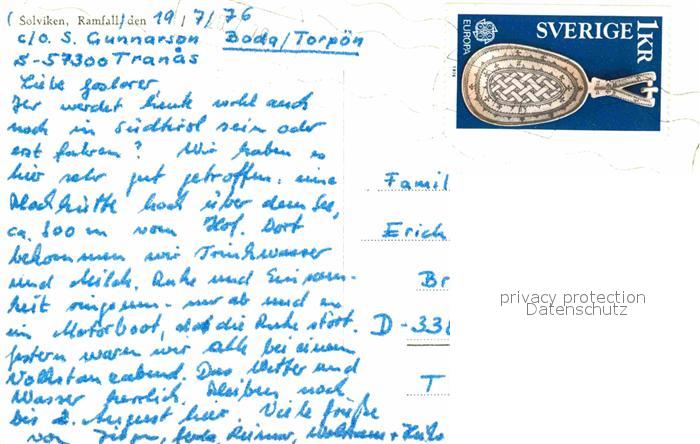 (Solviken, Ramfall/den 19/7/76
c/o. S. Gunnarson Boda/Torpön
S-57300 Tranås
Liebe Goslarer
Ihr werdet heute wohl auch
noch in Südtirol sein oder
erst fahren? Wir haben es
hier sehr gut getroffen: eine
Blockhütte hoch über dem See,
ca. 800 m vom Hof. Dort
bekommen wir Trinkwasser
und Milch. Ruhe und Einsam-
keit ringsum - nur ab und zu
ein Motorboot, das die Ruhe stört.
Gestern waren wir alle bei einem
Volkstanzabend. Das Wetter und
Wasser herrlich. Bleiben noch
bis 2. August hier. Viele Grüße
von Gerda, Reimar, Wolfram +
EUROPA
1976
SVERIGE 1KR
Famil
Erich
Br
D-338
T
privacy protection
Datenschutz